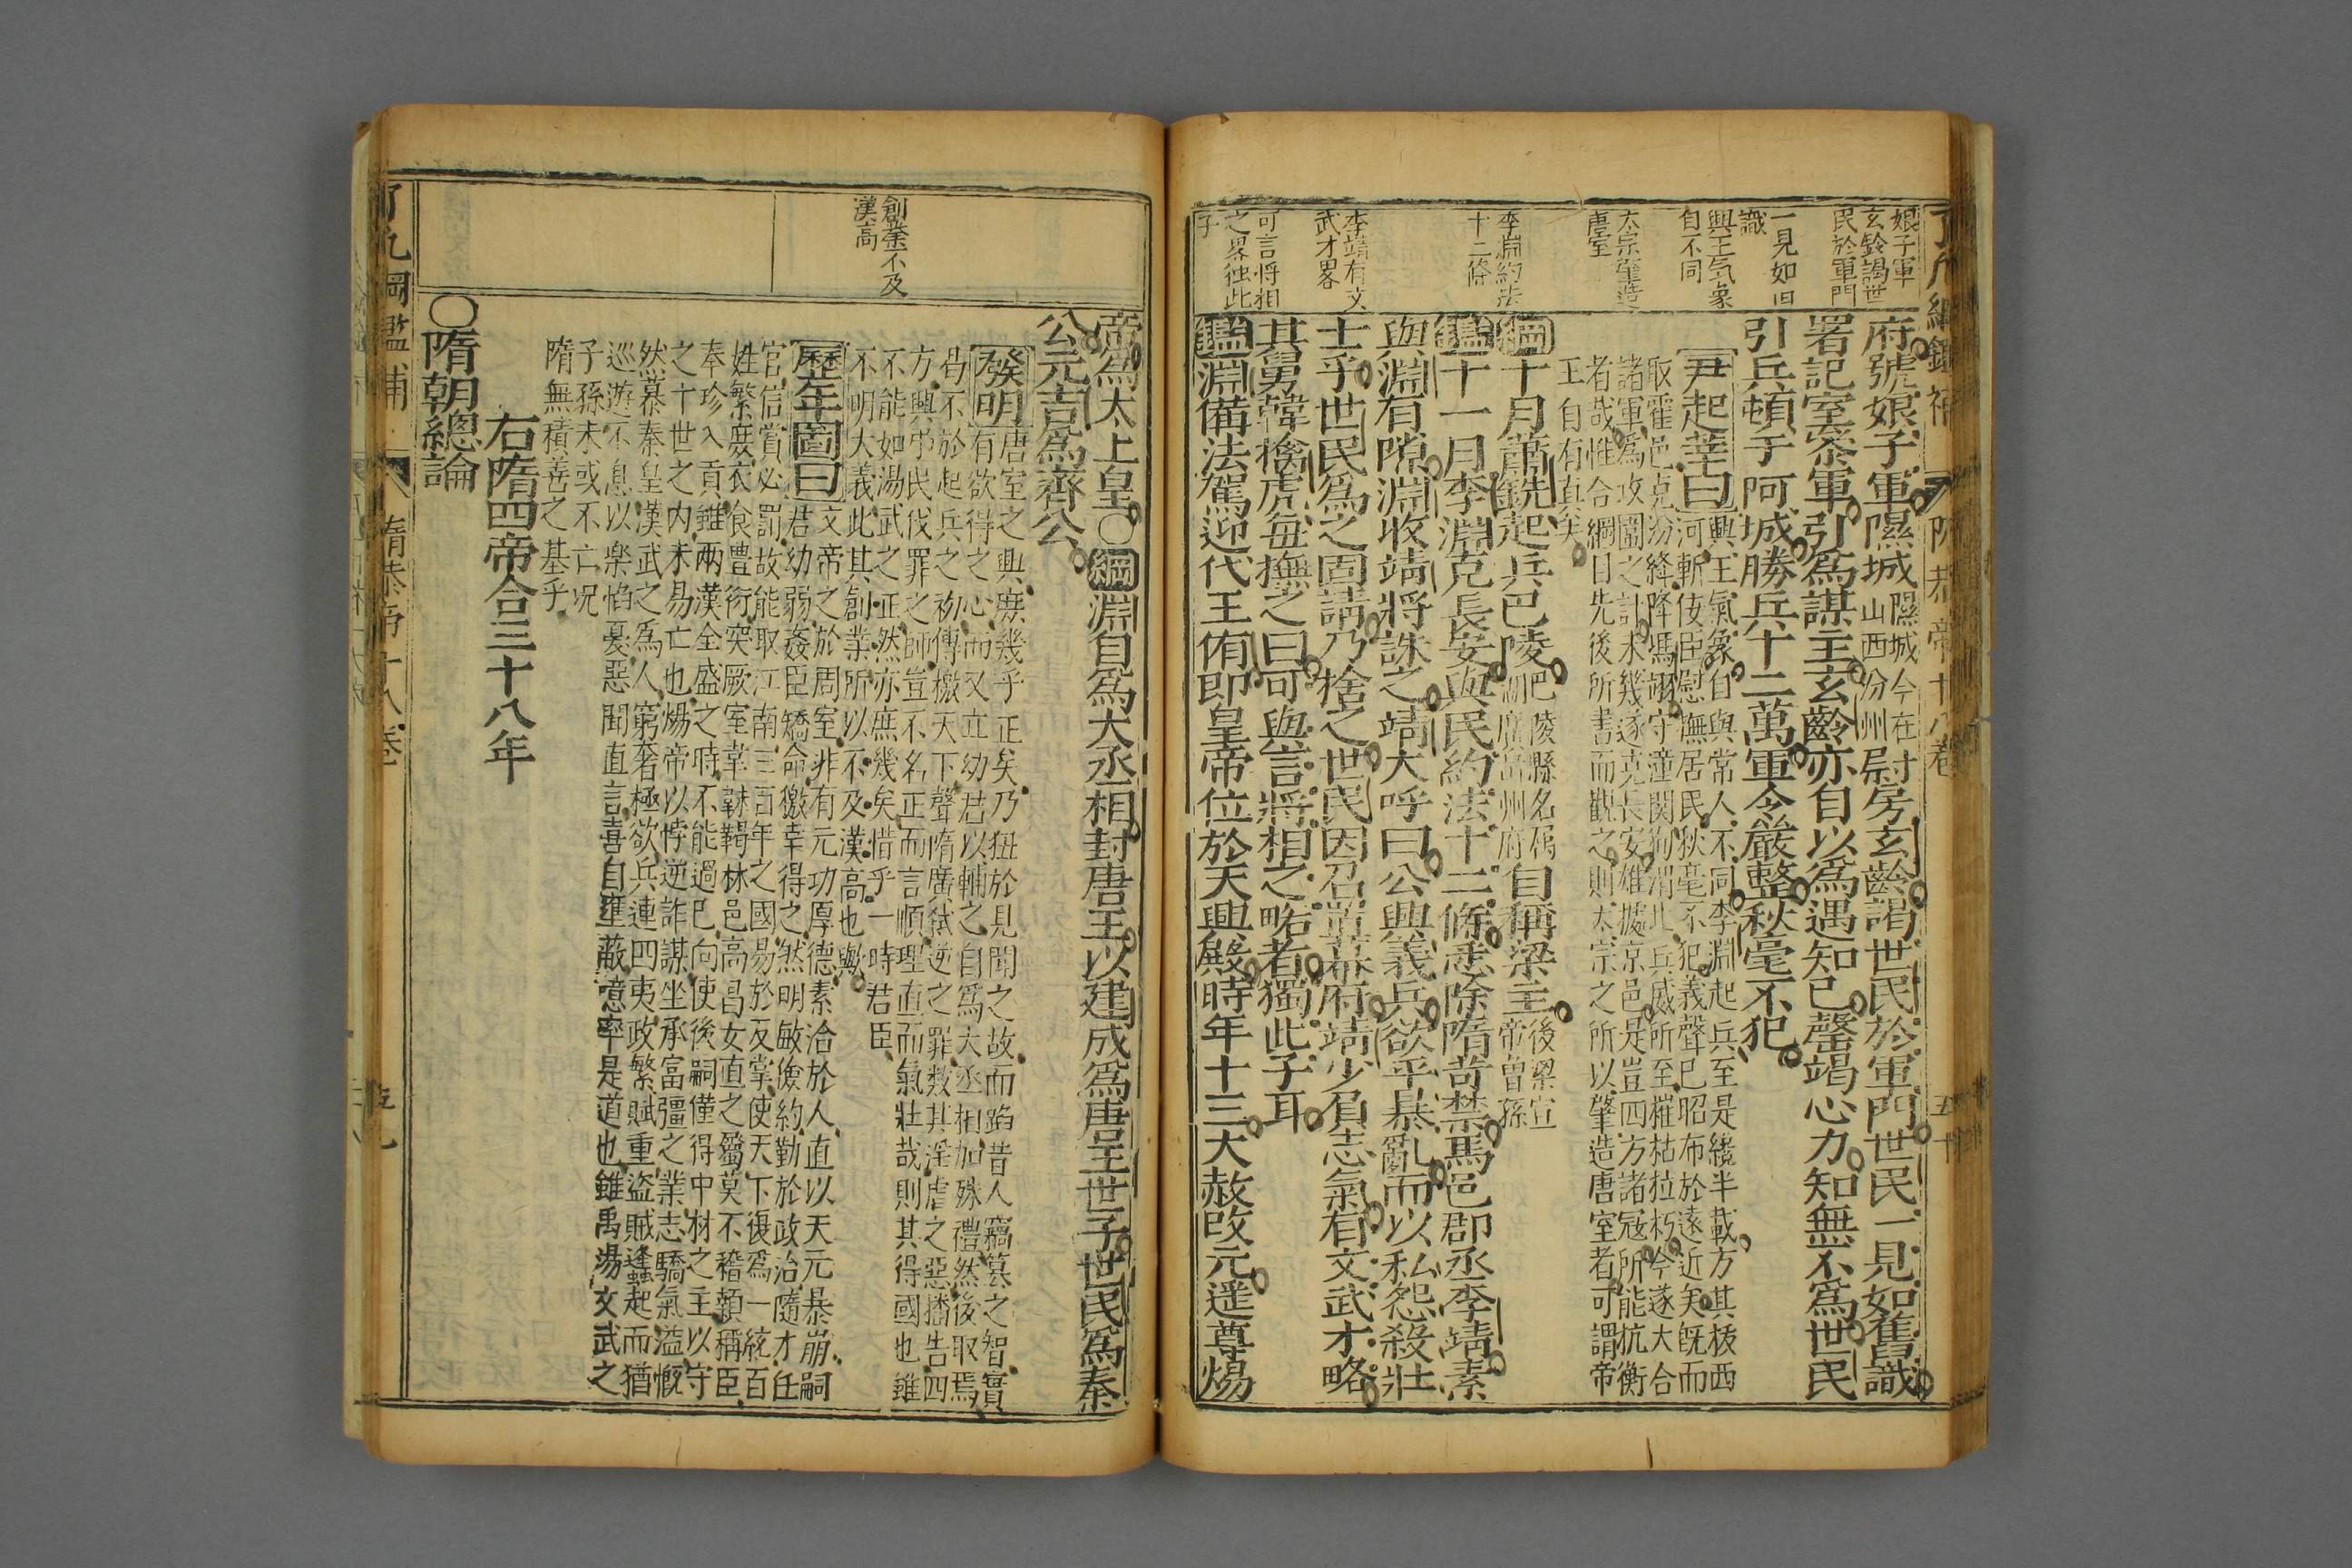 娘子軍
玄齡謁世
民於軍門
一見如旧
識
興王気象
自不同
太宗肇造
唐室
李淵約法
十二條
李靖有文
武才畧
可言将相
之畧独此
子
府號娘子軍隰城隰城今在山西汾州尉房玄齡謁世民於軍門世民一見如舊識
署記室參軍引爲謀主玄齡亦自以爲遇知己罄竭心力知無不爲世民
引兵頓于阿城勝兵十二萬軍令嚴整秋毫不犯
尹起莘曰興王氣象自與常人不同李淵起兵至是纔半載方其抜西
河斬佞臣慰撫居民秋毫不犯義聲已昭布於遠近矣既而
取霍邑克汾絳降馮翊守潼関徇渭北兵威所至摧枯拉朽今遂大合
諸軍爲攻圍之計未幾遂克長安雄據京邑是豈四方諸冦所能抗衡
者哉惟合綱目先後所書而觀之則太宗之所以肇造唐室者可謂帝
王自有真矣
綱十月蕭銑起兵巴陵巴陵縣名属湖廣岳州府自稱梁主後梁宣帝曾孫
鑑十一月李淵克長安與民約法十二條悉除隋苛禁馬邑郡丞李靖素
與淵有隙淵收靖將誅之靖大呼曰公興義兵欲平暴亂而以私怨殺壯
士乎世民爲之固請乃捨之世民因召置幕府靖少負志氣有文武才略
其舅韓擒虎每撫之曰可與言將相之略者獨此子耳
鑑淵備法駕迎代王侑即皇帝位於天興殿時年十三大赦改元遥尊煬
創業不及
漢高
帝爲太上皇○綱淵自爲大丞相封唐王以建成爲唐王世子世民爲秦
公元吉爲齊公
發明唐室之興庶幾乎正矣乃狃於見聞之故而蹈昔人竊篡之智實
有欲得之心而又立幼君以輔之自爲大丞相加殊禮然後取焉
曷不於起兵之初傳檄天下聲隋廣弑逆之罪数其淫虐之惡播告四
方興弔民伐罪之師豈不名正而言順理直而氣壯哉則其得國也雖
不能如湯武之正然亦庶幾矣惜乎一時君臣
不明大義此其創業所以不及漢高也歟
歷年圖曰文帝之於周室非有元功厚德素洽於人直以天元暴崩嗣
君幼弱姦臣矯命徼幸得之然明敏儉約勤於政治隨才任
官信賞必罰故能取江南三百年之國易於反掌使天下復爲一統百
姓繁庶衣食豊衍突厥室韋靺鞨林邑高昌女直之屬莫不稽顙稱臣
奉珍入貢雖兩漢全盛之時不能過已向使後嗣僅得中材之主以守
之十世之内未易亡也煬帝以悖逆詐謀坐承富彊之業志驕氣溢慨
然慕秦皇漢武之爲人窮奢極欲兵連四夷政繁賦重盗賊蠭起而猶
巡遊不息以樂慆憂惡聞直言喜自壅蔽意率是道也雖禹湯文武之
子孫未或不亡况
隋無積善之基乎
右隋四帝合三十八年
○隋朝總論
了凡綱鑑補
隋恭帝十八卷